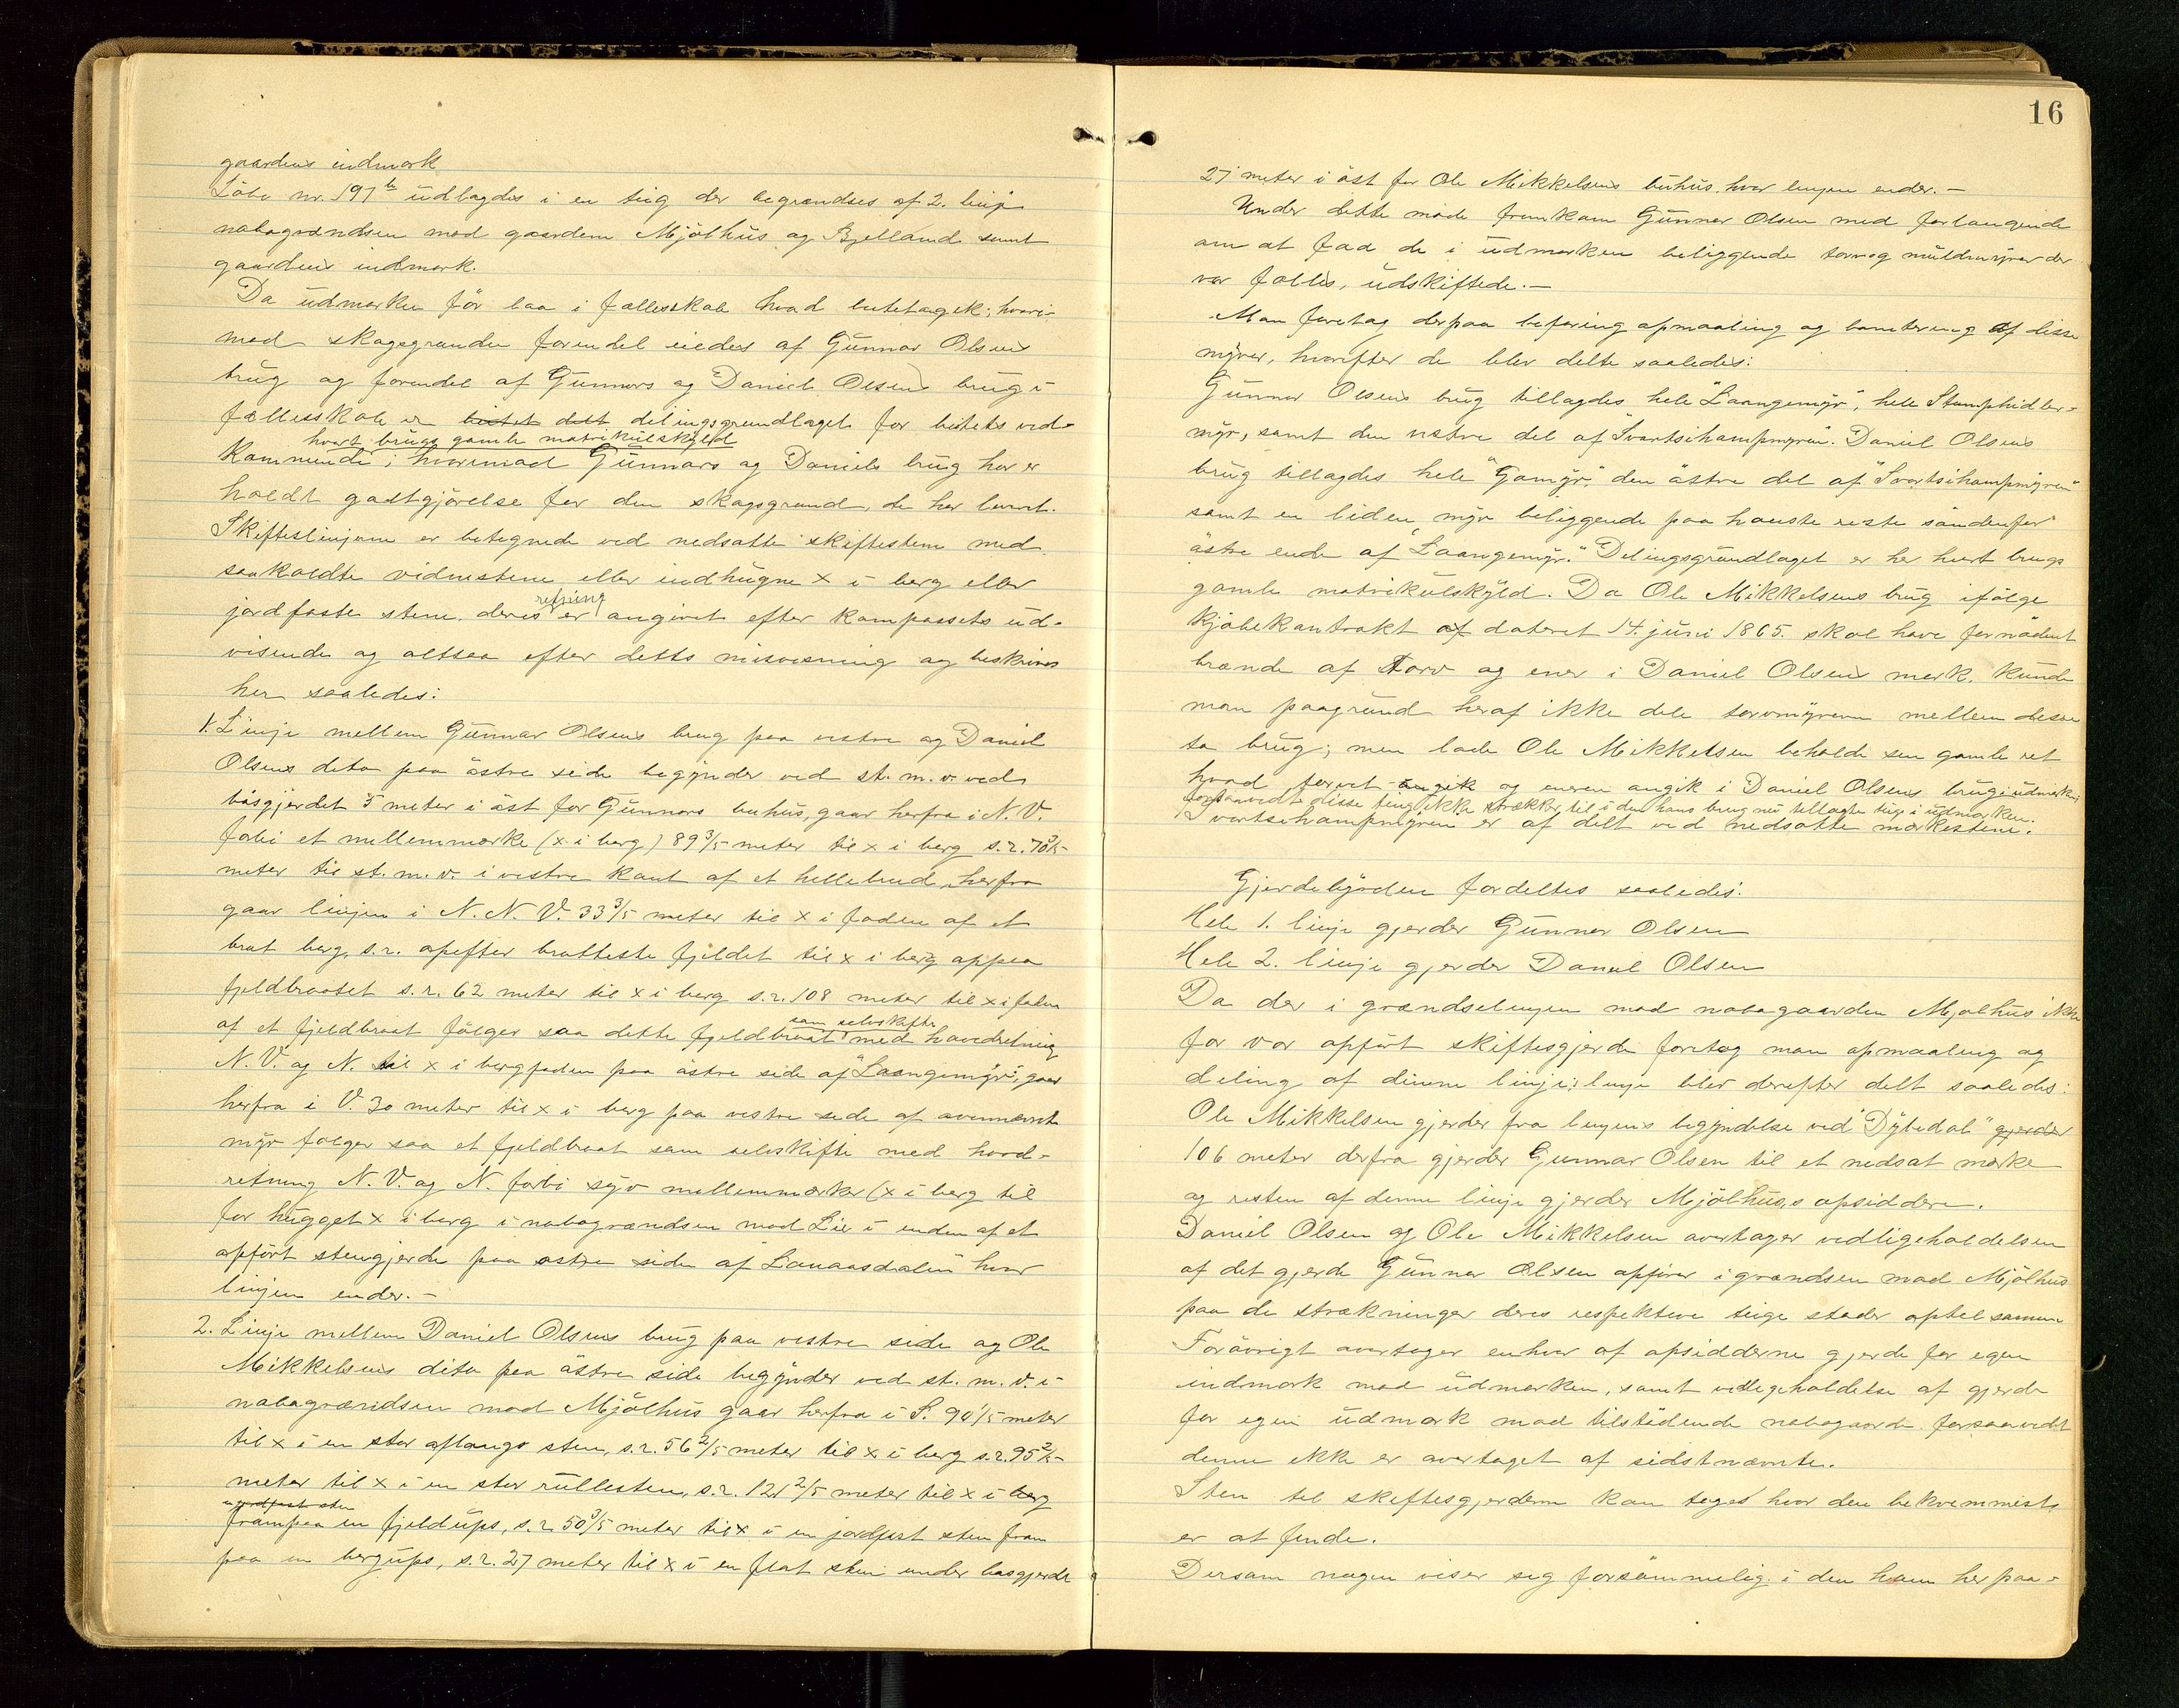 gaardens indmark
Løbe nr. 197 b udlagdes i en teig der begrændses af 2. linje
nabogrændsen mod gaardene Mjölhus og Bjelland samt
gaardens indmark.
Da udmarken för laa i fællesskab hvad beitet angik; hvori-
mod skogsgrunden forendel eiedes af Gunnar Olsens
brug og forendel af Gunnars og Daniel Olsens brug i
fællesskab er delingsgrundlaget for beitets ved-
hvert brugs gamle matrikulskyld
kommende; hvorimod Gunnars og Daniels brug har er
holdt godtgjörelse for den skogsgrund, de har levert.
Skifteslinjerne er betegnede ved nedsatte skiftestene med
saakaldte vidnestene eller indhugne x i berg eller
jordfaste stene. deres retning er angivet efter kompassets ud-
visende og altsaa efter dettes misvisning og beskrives
her saaledes:
1. Linje mellem Gunnar Olsens brug paa vestre og Daniel
Olsens dito paa östre side begynder ved st. m. v. ved
bögjerdet 5 meter i öst for Gunnars buhus, gaar herfra i N. V.
forbi et mellemmærke (x i berg) 89 3/5 meter til x i berg s.r. 70 3/5
meter til st. m. v. i vestre kant af et hellebrud, herfra
gaar linjen i N. N. V. 33 3/5 meter til x i foden af et
brat berg, s.r. opefter bratteste fjeldet til x i berg oppaa
fjeldbraatet s.r. 62 meter til x i berg s.r. 108 meter til x i foden
af et fjeldbraat fölger saa dette fjeldbraat som selvskifte med hovedretning
N. V. og N. til x i bergfoden paa östre side af "Laangemyr", gaar
herfra i V. 30 meter til x i berg paa vestre side af ovennævnte
myr fölger saa et fjeldbraat som selvskifte med hoved-
retning N. V. og N. forbi syv mellemmærker (x i berg til
för hugget x i berg i nabogrændsen mod Lie i enden af et
opfört stengjerde paa östre side af hvor
linjen ender. –
2. Linje mellem Daniel Olsens brug paa vestre side og Ole
Mikkelsens dito paa östre side begynder ved st. m. v. i
nabogrændsen mod Mjölhus gaar herfra i S. 90 1/5 meter
til x i en stor aflang sten, s.r. 56 2/5 meter til x i berg s.r. 95 2/5
meter til x i en stor rullesten, s.r. 121 2/5 meter til x i berg
en jordfast sten
frampaa en fjeldups, s.r. 50 3/5 meter til x i en jordfast sten fram
paa en bergups, s.r. 27 meter til x i en flat sten under bögjerdet
16
27 meter i öst for Ole Mikkelsens buhus, hvor linjen ender. –
Under dette möde fremkom Gunnar Olsen med forlangende
om at faa de i udmarken beliggende torv og muldmyrer der
var fælles, udskiftede. –
Man foretog derpaa befaring opmaaling og bonitering af disse
myrer, hvorefter de blev delte saaledes:
Gunnar Olsens brug tillagdes hele "Laangemyr", hele
myr, samt den vestre del af "Svartsihampmyren". Daniel Olsens
brug tillagdes hele "Gomyr", den östre del af "Svartsihampmyren"
samt en liden myr beliggende paa höieste söndenfor
östre ende af "Laangemyr". Delingsgrundlaget er her hvert brugs
gamle matrikulskyld. Da Ole Mikkelsens brug ifölge
kjöbekontrakt af dateret 14. juni 1865. skal have fornödent
brænde af Torv og ener i Daniel Olsens mark. kunde
man paagrund heraf ikke dele torvmyrerne mellem disse
to brug; men lade Ole Mikkelsen beholde sin gamle ret
hvad torvet angik og eneren angik i Daniel Olsens brugs udmark;
forsaavidt disse ting ikke strækker til i den hans brug nu tillagte teig i udmarken.
Svartsihampmyren er af delt ved nedsatte mærkestene.
Gjerdebyrden fordeltes saaledes:
Hele 1. linje gjerder Gunnar Olsen
Hele 2. linje gjerder Daniel Olsen
Da der i grændselinjen mod nabogaarden Mjölhus ikke
för var opfört skiftesgjerde foretog man opmaaling og
deling af denne linje; linje blev derefter delt saaledes:
Ole Mikkelsen gjerder fra linjens begyndelse ved "Dybedal" gjerder
106 meter derfra gjerder Gunnar Olsen til et nedsat mærke
og resten af denne linje gjerder Mjölhus,s opsiddere.
Daniel Olsen og Ole Mikkelsen overtager vedligeholdelsen
af det gjerde Gunnar Olsen opförer i grændsen mod Mjölhus
paa de strækninger deres respektive teige stöder optil samme
Forövrigt overtager enhver af opsidderne gjerde for egen
indmark mod udmarken, samt vedligeholdelse af gjerde
for egen udmark mod tilstödende nabogaarde forsaavidt
denne ikke er overtaget af sidstnævnte.
Sten til skiftesgjerderne kan tages hvor den bekvemmest
er at finde.
Dersom nogen viser sig forsömmelig i den ham her paa-